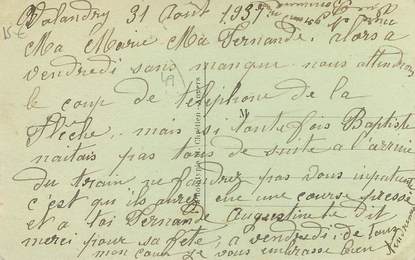 Volandry 31 Août 1937
15 €
Ma Marie Ma Fernande, alors a
vendredi sans manque nous attendrons
le coup de téléphone de la
Flèche, mais si toute fois Baptiste
naitais pas tous de suite a l'arrivée
du train ne faudrez pas vous impatienter
c'est qu'ils aurez eue une course pressé
et a toi Fernande Augustine te dit
merci pour sa fête, a vendredi, de tout
mon cœur je vous embrasse bien
tendrement